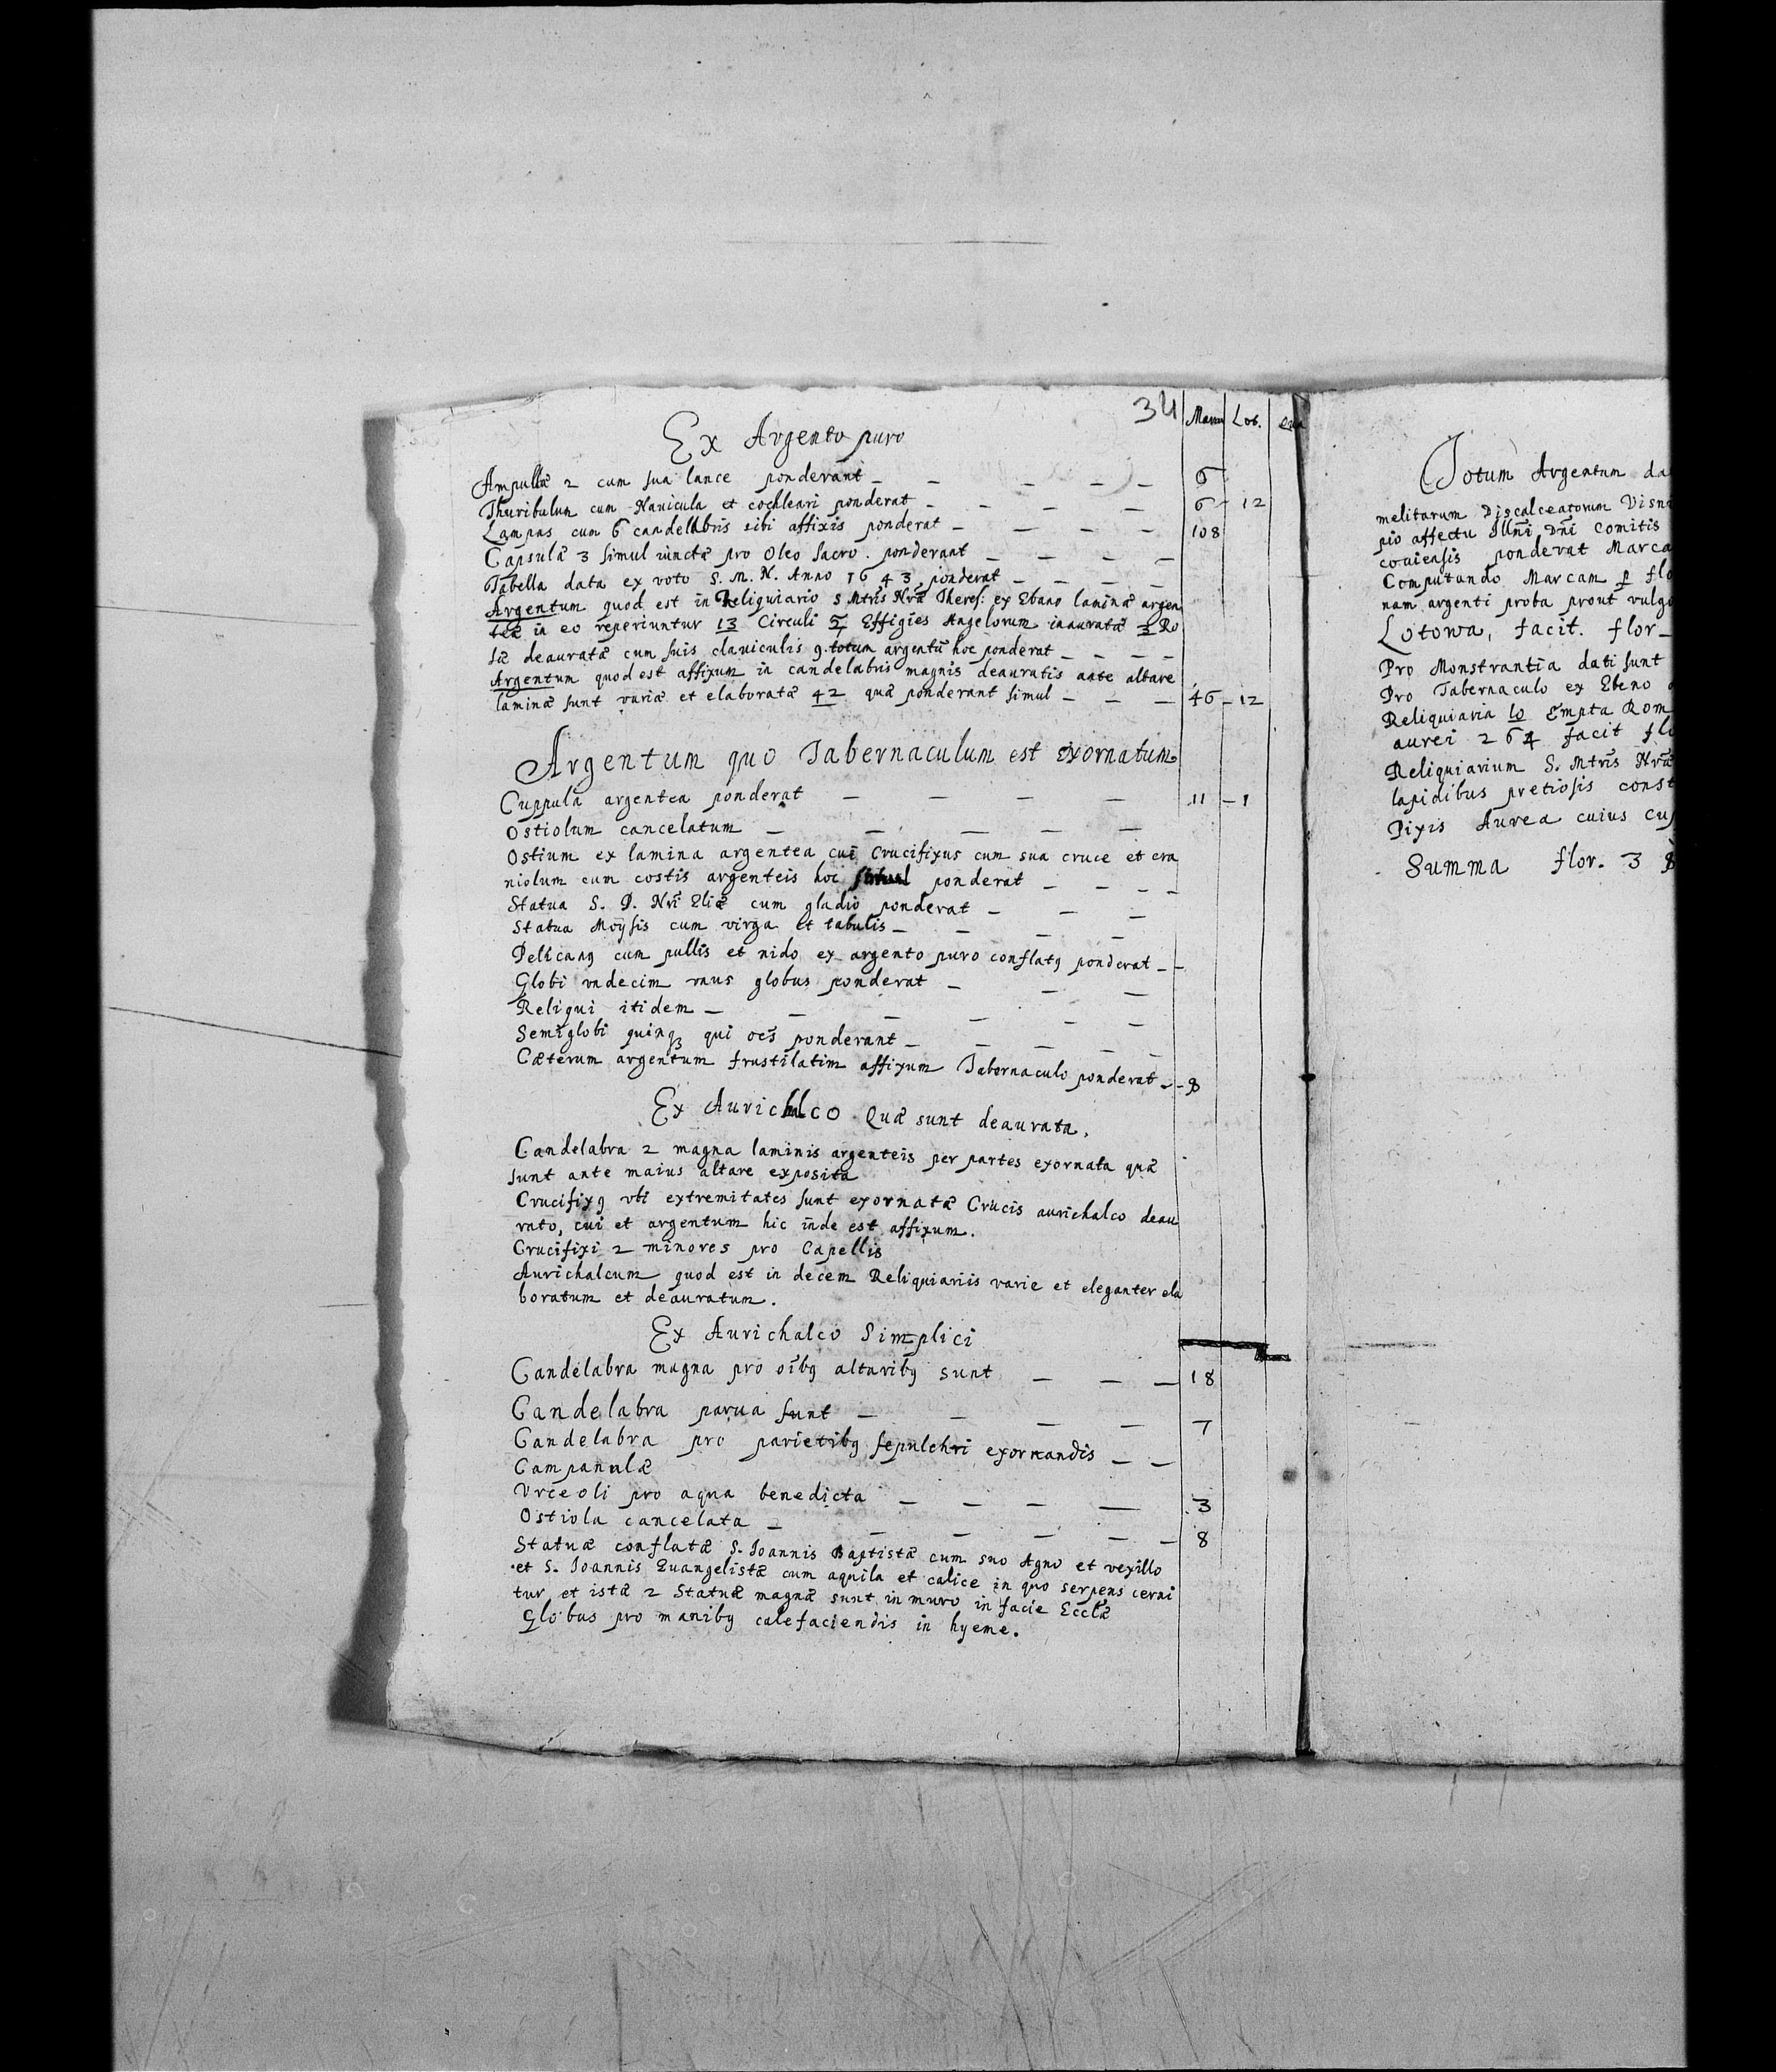 34 Marcae Lot.
Ex Argento puro
Ampullæ 2 cum sua lance ponderant — — — — — 6
Thuribulum cum Nauicula et cochleari ponderat — — — — — 6 - 12
Lampas cum 6 candelabris sibi affixis ponderat — — — — — 108
Capsulæ 3 simul iunctæ pro Oleo sacro. ponderant — — — —
Tabella data ex voto S. M. N. Anno 1643, ponderat — — — —
Argentum quod est in Reliquiario S Mtris Nræ Theres: ex Ebano laminæ argen
teæ in eo reperiuntur 13 Circuli 5 Effigies Angelorum inauratæ 3 Ro
sæ deauratæ cum suis clauiculis 9. totum argentū hoc ponderat — — — —
Argentum quod est affixum in candelabris magnis deauratis ante altare
laminæ sunt variæ et elaboratæ 42 quæ ponderant simul — — — 46 - 12
Argentum quo Tabernaculum est exornatum
Cuppula argentea ponderat — — — — 11 - 1
Ostiolum cancelatum — — — — —
Ostium ex lamina argentea cui Crucifixus cum sua cruce et cra
niolum cum costis argenteis hoc simul ponderat — — — —
Statua S. P. Nri Eliæ cum gladio ponderat — — —
Statua Moysis cum virga et tabulis — — — —
Pelicanꝯ cum pullis et nido ex argento puro conflatꝯ ponderat — —
Globi vndecim vnus globus ponderat — — —
Reliqui itidem — — — — — —
Semiglobi quinqꝫ qui oēs ponderant — — — — —
Cæterum argentum frustilatim affixum Tabernaculo ponderat — - 8
Ex Aurichalco Quæ sunt deaurata.
Candelabra 2 magna laminis argenteis per partes exornata quæ
sunt ante maius altare exposita
Crucifixꝯ vbi extremitates sunt exornatæ Crucis aurichalco deau
rato, cui et argentum hic inde est affixum.
Crucifixi 2 minores pro Capellis
Aurichalcum quod est in decem Reliquiariis varie et eleganter ela
boratum et deauratum.
Ex Aurichalco Simplici
Candelabra magna pro oībꝯ altaribꝯ sunt — — — 18
Candelabra parua sunt — — — — 7
Candelabra pro parietibꝯ sepulchri exornandis — —
Campanulæ
Vrceoli pro aqua benedicta — — — — 3
Ostiola cancelata — — — — — — 8
Statuæ conflatæ S. Ioannis Baptistæ cum suo Agno et vexillo
et S. Ioannis Euangelistæ cum aquila et calice in quo serpens cerni
tur et istæ 2 Statuæ magnæ sunt in muro in facie Eccłæ
Globus pro manibꝯ calefaciendis in hyeme.
Totum Argentum da
melitarum Discalceatorum Visni
pio affectu Illm̄i Dn̄i Comitis
couiensis ponderat Marca
Computando Marcam p flo
nam argenti proba prout vulgo
Lotowa, facit. flor —
Pro Monstrantia dati sunt
Pro Tabernaculo ex Ebeno
Reliquiaria 10 Empta Rom
aurei 264 facit flo
Reliquiarium S. Mtris Nræ
lapidibus pretiosis const
Pixis Aurea cuius cup
Summa flor. 3 8